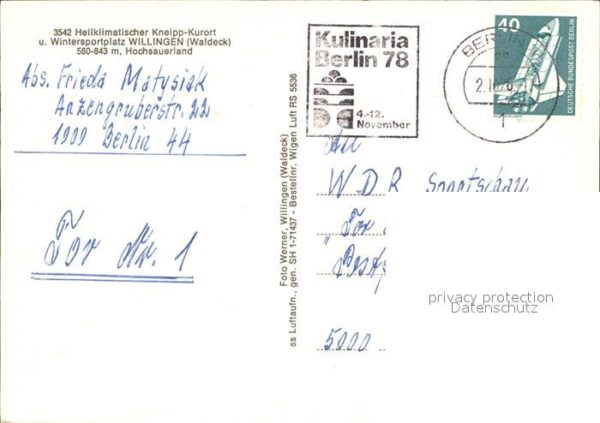 3542 Heilklimatischer Kneipp-Kurort
u. Wintersportplatz WILLINGEN (Waldeck)
580-843 m, Hochsauerland
Abs. Frieda Matysiak
Anzengruberstr. 22
1000 Berlin 44
Tor Nr. 1
Foto Werner, Willingen (Waldeck)
ss Luftaufn., gen. SH 1-71437 - Bestellnr. Wigen Luft RS 5536
Kulinaria
Berlin 78
4.-12.
November
BERLIN
40
DEUTSCHE BUNDESPOST BERLIN
An
WDR Sportschau
"Tor
5000
privacy protection
Datenschutz